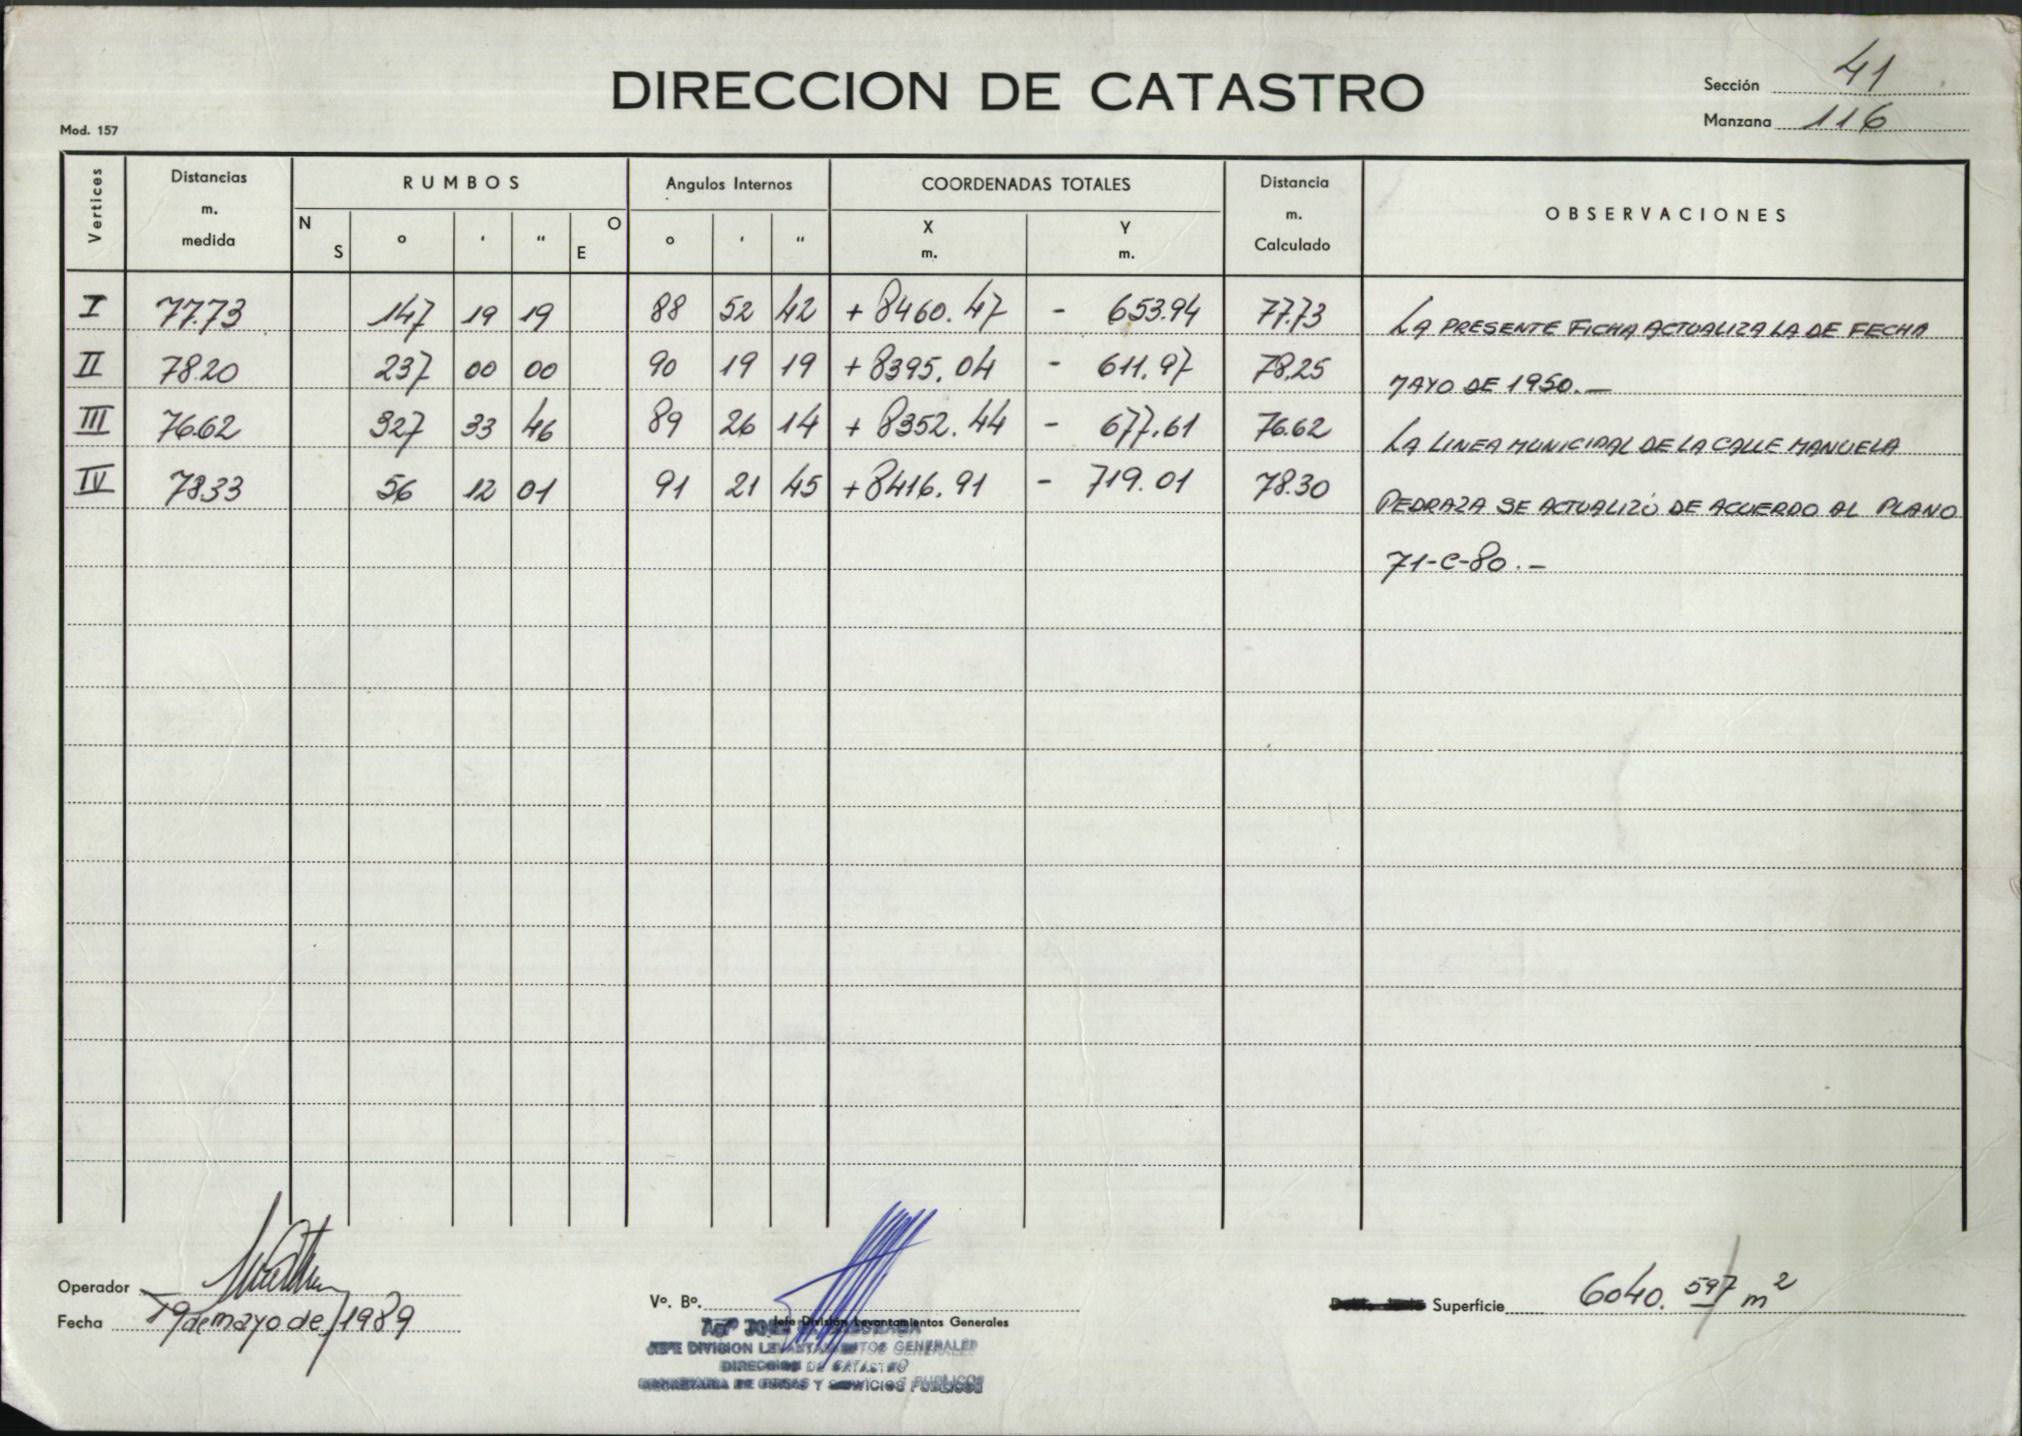 DIRECCION DE CATASTRO
Sección 41
Manzana 116
Mod. 157
Vertices Distancias m. medida RUMBOS N S ° ' " O E Angulos Internos ° ' " COORDENADAS TOTALES X m. Y m. Distancia m. Calculado OBSERVACIONES
I 77.73 147 19 19 88 52 42 + 8460.47 - 653.94 77.73 LA PRESENTE FICHA ACTUALIZA LA DE FECHA
II 78.20 237 00 00 90 19 19 + 8395.04 - 611.97 78.25 MAYO DE 1950.—
III 76.62 327 33 46 89 26 14 + 8352.44 - 677.61 76.62 LA LINEA MUNICIPAL DE LA CALLE MANUELA
IV 78.33 56 12 01 91 21 45 + 8416.91 - 719.01 78.30 PEDRAZA SE ACTUALIZÓ DE ACUERDO AL PLANO
71-C-80.—
Operador
Fecha 19 de mayo de 1989
Vº. Bº.
Jefe División Levantamientos Generales
JEFE DIVISION LEVANTAMIENTOS GENERALES
DIRECCION DE CATASTRO
SECRETARIA DE OBRAS Y SERVICIOS PUBLICOS
Superficie 6040.597 m²